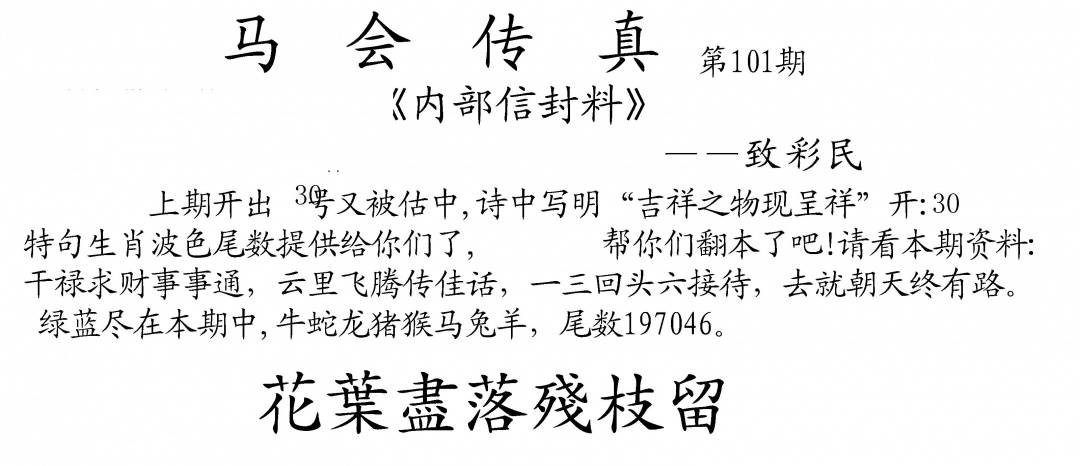 马会传真 第101期
《内部信封料》
——致彩民
上期开出 30号又被估中,诗中写明“吉祥之物现呈祥”开:30
特句生肖波色尾数提供给你们了, 帮你们翻本了吧!请看本期资料:
干禄求财事事通，云里飞腾传佳话，一三回头六接待，去就朝天终有路。
绿蓝尽在本期中,牛蛇龙猪猴马兔羊，尾数197046。
花葉盡落殘枝留